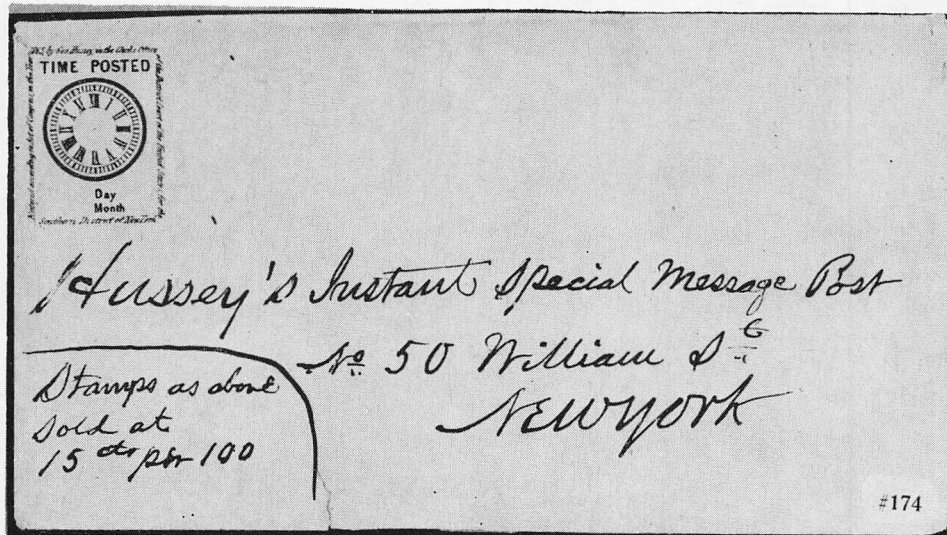 1863 by Geo. Hussey, in the Clerks Office
TIME POSTED
Day
Month
Southern District of New York
Hussey's Instant Special Message Post
No 50 William St
New York
Stamps as above
sold at
15 cts per 100
#174